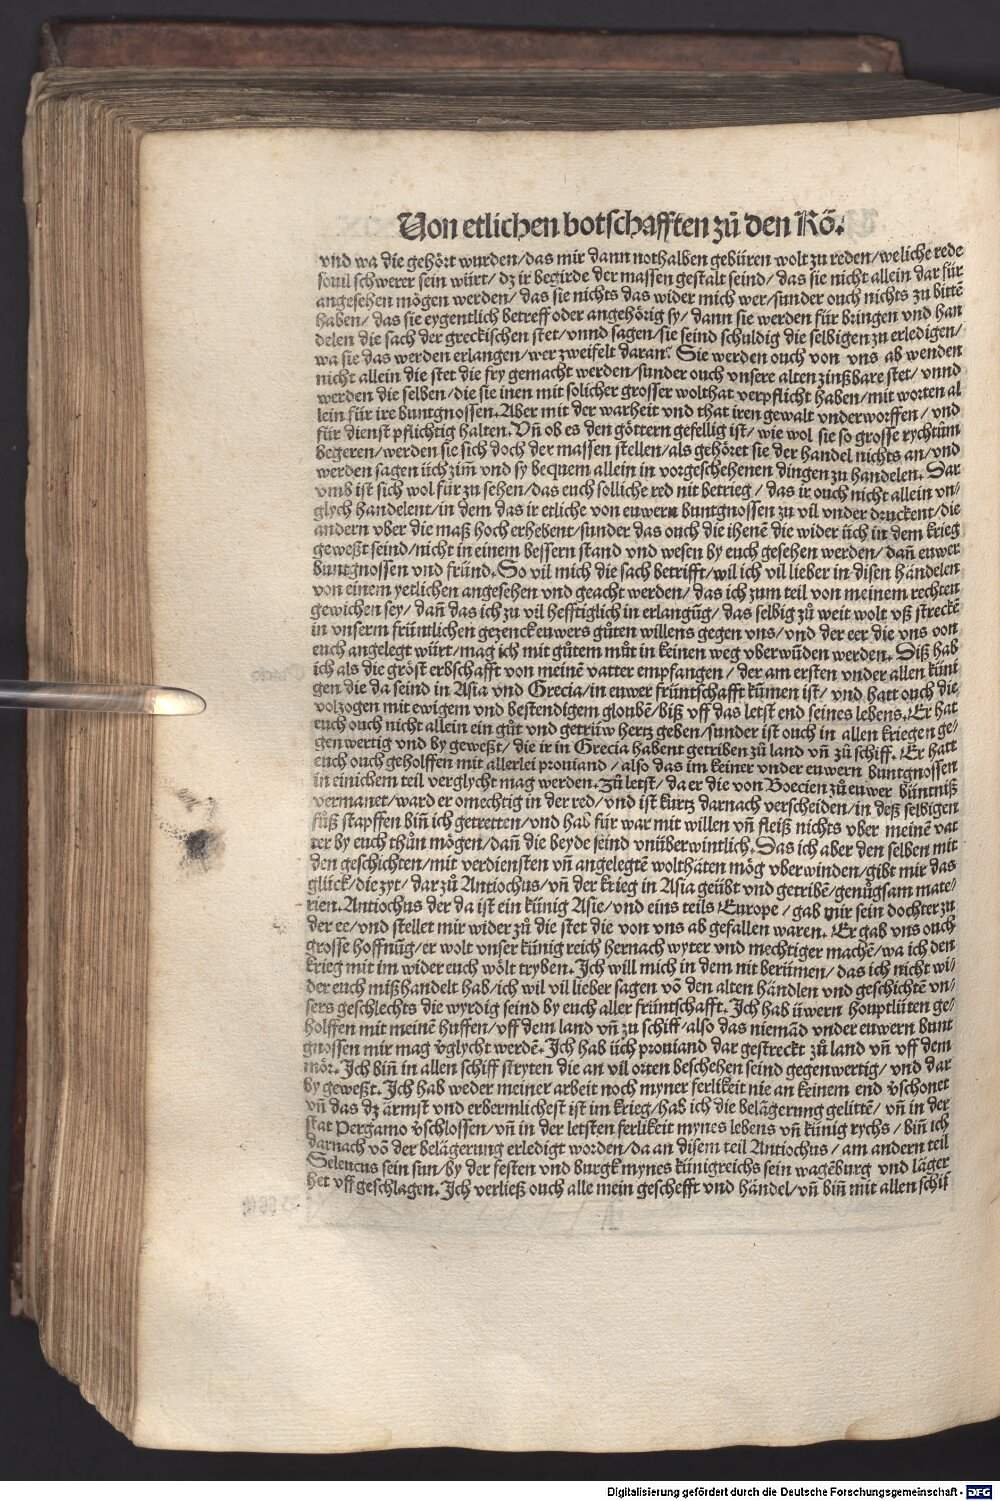 Von etlichen botschafften zů den Rö.
vnd wa die gehört wurden/das mir dann nothalben gebüren wolt zu reden/weliche rede
souil schwerer sein würt/ dz ir begirde der massen gestalt seind/ das sie nicht allein dar für
angesehen mögen werden/ das sie nichts das wider mich wer/sunder ouch nichts zu bittē
haben/ das sie eygentlich betreff oder angehörig sy/ dann sie werden für bringen vnd han
delen die sach der greckischen stet/vnnd sagen/sie seind schuldig die selbigen zu erledigen/
wa sie das werden erlangen/wer zweifelt daran? Sie werden ouch von vns ab wenden
nicht allein die stet die fry gemacht werden/sunder ouch vnsere alten zinßbare stet/ vnnd
werden die selben/die sie inen mit solicher grosser wolthat verpflicht haben/mit worten al
lein für ire buntgnossen. Aber mit der warheit vnd that iren gewalt vnderworffen/ vnd
für dienst pflichtig halten. Vñ ob es den göttern gefellig ist/ wie wol sie so grosse rychtüm
begeren/werden sie sich doch der massen stellen/als gehöret sie der handel nichts an/vnd
werden sagen üch zim̄ vnd sy bequem allein in vorgeschehenen dingen zu handelen. Dar
vmb ist sich wol für zu sehen/das euch solliche red nit betrieg/ das ir ouch nicht allein vn/
glych handelent/in dem das ir etliche von euwern buntgnossen zu vil vnder druckent/die
andern vber die maß hoch erhebent/sunder das ouch die ihenē die wider üch in dem krieg
geweßt seind/nicht in einem bessern stand vnd wesen by euch gesehen werden/ dañ euwer
buntgnossen vnd fründ. So vil mich die sach betrifft/wil ich vil lieber in disen händelen
von einem yetlichen angesehen vnd geacht werden/ das ich zum teil von meinem rechten
gewichen sey/ dañ das ich zu vil hefftiglich in erlangūg/ das selbig zů weit wolt vß streckē
in vnserm früntlichen gezenck euwers gůten willens gegen vns/vnd der eer die vns von
euch angelegt würt/mag ich mit gůtem můt in keinen weg vberwūden werden. Diß hab
ich als die gröst erbschafft von meinē vatter empfangen/ der am ersten vnder allen küni
gen die da seind in Asia vnd Grecia/in euwer früntschafft kūmen ist/ vnd hatt ouch die
volzogen mit ewigem vnd bestendigem gloubē/biß vff das letst end seines lebens. Er hat
euch ouch nicht allein ein gůt vnd getrüw hertz geben/sunder ist ouch in allen kriegen ge/
genwertig vnd by geweßt/ die ir in Grecia habent getriben zů land vñ zů schiff. Er hatt
euch ouch geholffen mit allerlei prouiand/ also das im keiner vnder euwern buntgnossen
in einichem teil verglycht mag werden. Zů letst/ da er die von Boecien zů euwer büntniß
vermanet/ward er omechtig in der red/vnd ist kurtz darnach verscheiden/in deß selbigen
fůß stapffen biñ ich getretten/vnd hab für war mit willen vñ fleiß nichts vber meinē vat
ter by euch thůn mögen/dañ die beyde seind vnüberwintlich. Das ich aber den selben mit
den geschichten/mit verdiensten vñ angelegtē wolthäten mög vberwinden/gibt mir das
glück/die zyt/ dar zů Antiochus/vñ der krieg in Asia geübt vnd getribē/genůgsam mate/
rien. Antiochus der da ist ein künig Asie/vnd eins teils Europe/ gab mir sein dochter zu
der ee/vnd stellet mir wider zů die stet die von vns ab gefallen waren. Er gab vns ouch
grosse hoffnūg/er wolt vnser künig reich hernach wyter vnd mechtiger machē/wa ich den
krieg mit im wider euch wölt tryben. Ich will mich in dem nit berümen/das ich nicht wi/
der euch mißhandelt hab/ich wil vil lieber sagen vō den alten händlen vnd geschichtē vn/
sers geschlechts die wyrdig seind by euch aller früntschafft. Ich hab üwern houptlüten ge/
holffen mit meinē huffen/vff dem land vñ zu schiff/also das niemād vnder euwern bunt
gnossen mir mag v̄glycht werdē. Ich hab üch prouiand dar gestreckt zů land vñ vff dem
mör. Ich biñ in allen schiff stryten die an vil orten beschehen seind gegenwertig/ vnd dar
by geweßt. Ich hab weder meiner arbeit noch myner ferlikeit nie an keinem end v̄schonet
vñ das dz ärmst vnd erbermlichest ist im krieg/hab ich die belägerung gelittē/ vñ in der
stat Pergamo v̄schlossen/vñ in der letsten ferlikeit mynes lebens vñ künig rychs/ biñ ich
darnach vō der belägerung erledigt worden/da an disem teil Antiochus/ am andern teil
Seleucus sein sun/by der festen vnd burgk mynes künigreichs sein wagēburg vnd läger
het vff geschlagen. Ich verließ ouch alle mein geschefft vnd händel/vñ biñ mit allen schif
Digitalisierung gefördert durch die Deutsche Forschungsgemeinschaft - DFG